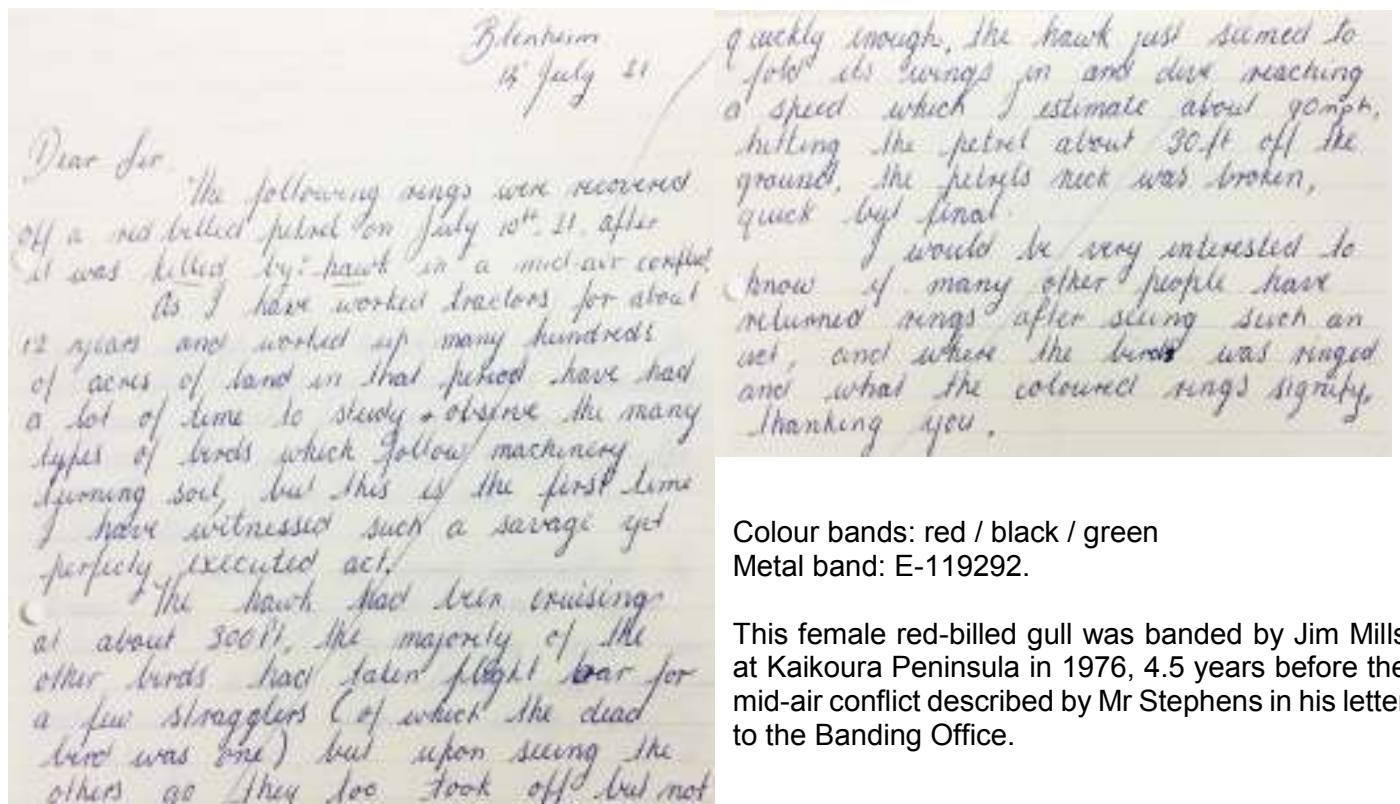 Blenheim
July 81
Dear Sir.
The following rings were recovered
off a red billed petrel on July 10th. 81. after
it was killed by hawk in a mid-air conflict.
As I have worked tractors for about
12 years and worked up many hundreds
of acres of land in that period have had
a lot of time to study & observe the many
types of birds which follow machinery
turning soil, but this is the first time
I have witnessed such a savage yet
perfectly executed act.
The hawk had been cruising
at about 300ft, the majority of the
other birds had taken flight bar for
a few stragglers (of which the dead
bird was one) but upon seeing the
others go they too took off but not
quickly enough, the hawk just seemed to
fold its wings in and dive reaching
a speed which I estimate about 90mph,
hitting the petrel about 30ft off the
ground, the petrels neck was broken,
quick but final.
I would be very interested to
know if many other people have
returned rings after seeing such an
act, and where the birds was ringed
and what the coloured rings signify,
thanking you.
Colour bands: red / black / green
Metal band: E-119292.
This female red-billed gull was banded by Jim Mills
at Kaikoura Peninsula in 1976, 4.5 years before the
mid-air conflict described by Mr Stephens in his letter
to the Banding Office.